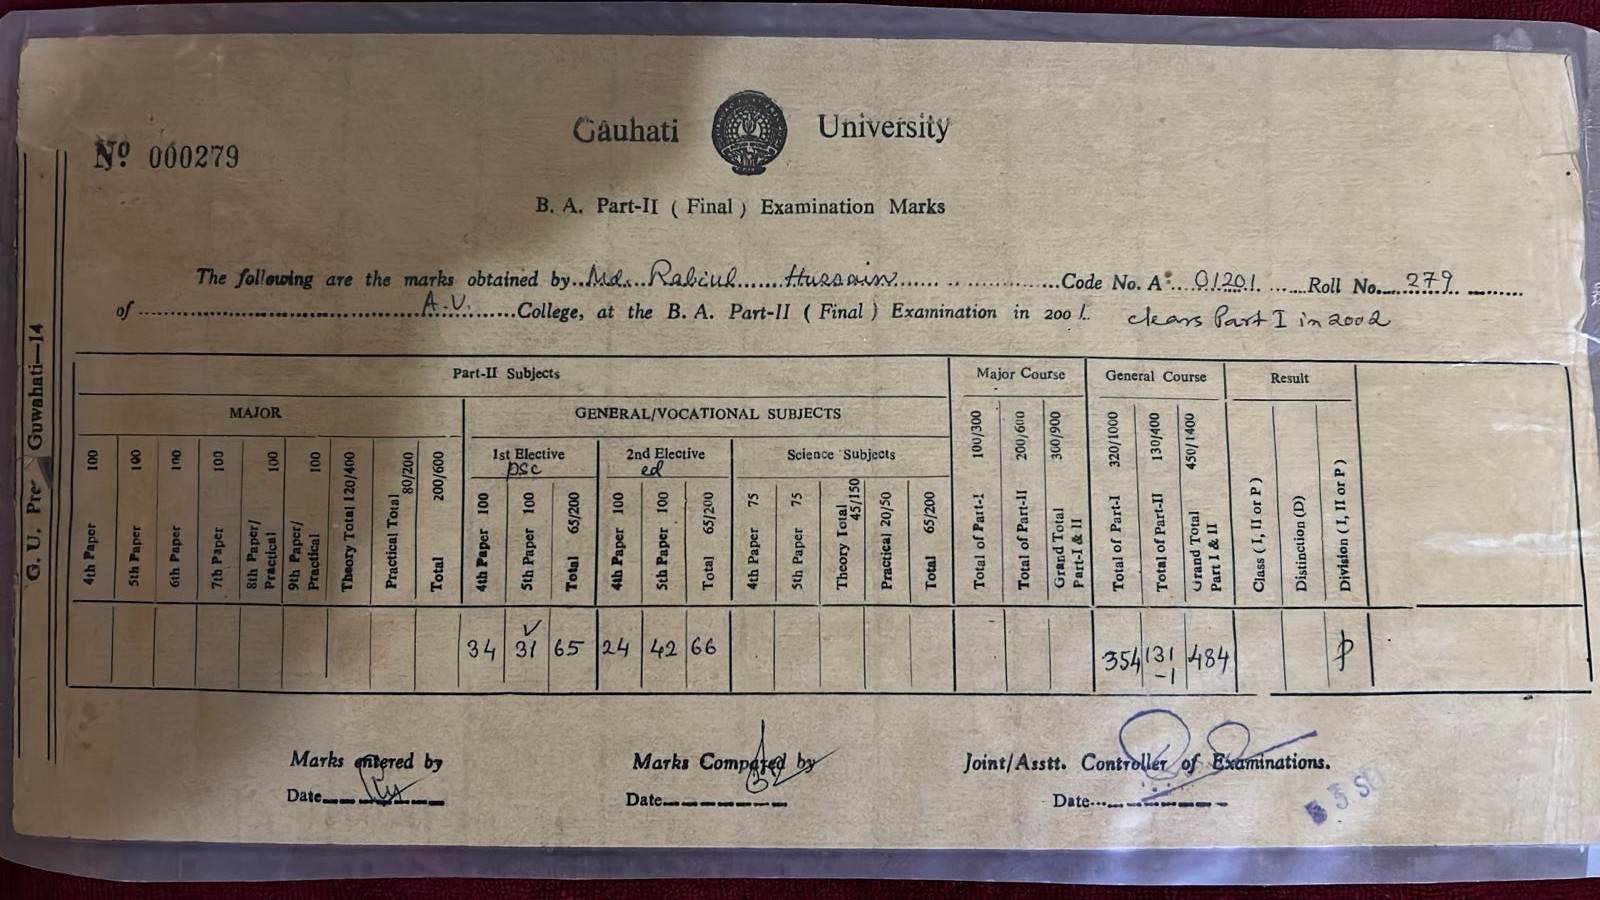 Gauhati University
Nº 000279
B. A. Part-II ( Final ) Examination Marks
The following are the marks obtained by Md. Rabiul Hussain Code No. A 01201 Roll No. 279
of A.V. College, at the B. A. Part-II ( Final ) Examination in 2001. clears Part I in 2002
G. U. Pre Guwahati—14
Part-II Subjects Major Course General Course Result
MAJOR GENERAL/VOCATIONAL SUBJECTS
1st Elective 2nd Elective Science Subjects
psc ed
4th Paper 100
5th Paper 100
6th Paper 100
7th Paper 100
8th Paper/ Practical 100
9th Paper/ Practical 100
Theory Total 120/400
Practical Total 80/200
Total 200/600
4th Paper 100
5th Paper 100
Total 65/200
4th Paper 100
5th Paper 100
Total 65/200
4th Paper 75
5th Paper 75
Theory Total 45/150
Practical 20/50
Total 65/200
Total of Part-I 100/300
Total of Part-II 200/600
Grand Total Part-I & II 300/900
Total of Part-I 320/1000
Total of Part-II 130/400
Grand Total Part I & II 450/1400
Class ( I, II or P )
Distinction (D)
Division ( I, II or P )
34 31 65 24 42 66 354 131 484 P
-1
Marks entered by Marks Compared by Joint/Asstt. Controller of Examinations.
Date Date Date